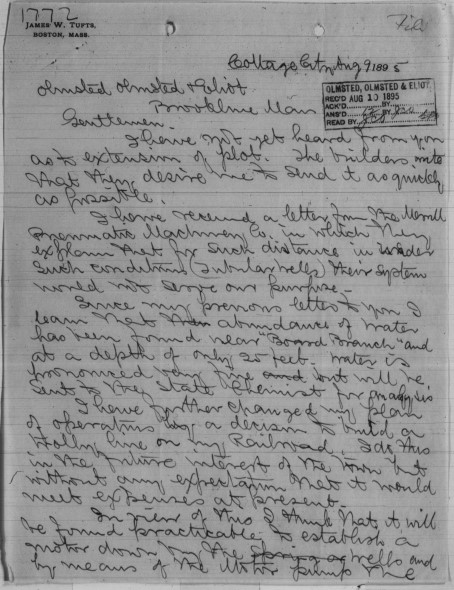 1772
File
JAMES W. TUFTS,
BOSTON, MASS.
Cottage City Aug 9 1895
Olmsted Olmsted & Eliot
Brookline Mass
OLMSTED, OLMSTED & ELIOT.
REC'D AUG 10 1895
ACK'D BY
ANS'D BY
READ BY
Gentlemen.
I have not yet heard from you
as to extension of plot. The builders write
that they desire me to send it as quickly
as possible.
I have received a letter from the Merrill
Pneumatic Machinery Co. in which they
explain that for such distance in under
such conditions (tubular wells) their system
would not serve our purpose.
Since my previous letter to you I
learn that an abundance of water
has been found near "Board Branch" and
at a depth of only 20 feet. Water is
pronounced very fine and but will be
sent to the State Chemist for analysis
I have further changed my plan
of operations by a decision to build a
trolly line on my Railroad. I do this
in the future interest of the town but
without any expectation that it would
meet expenses at present.
In view of this I think that it will
be found practicable to establish a
motor down by the spring or wells and
by means of the motor pump the